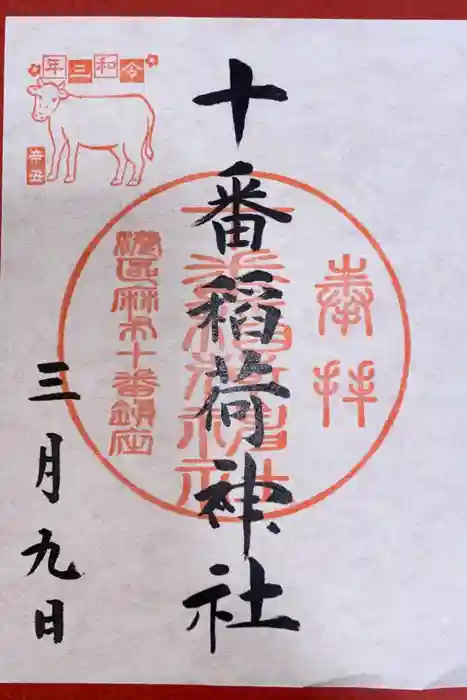 奉拝
十番稲荷神社
港区麻布十番鎮座
三月九日
令和三年
辛丑